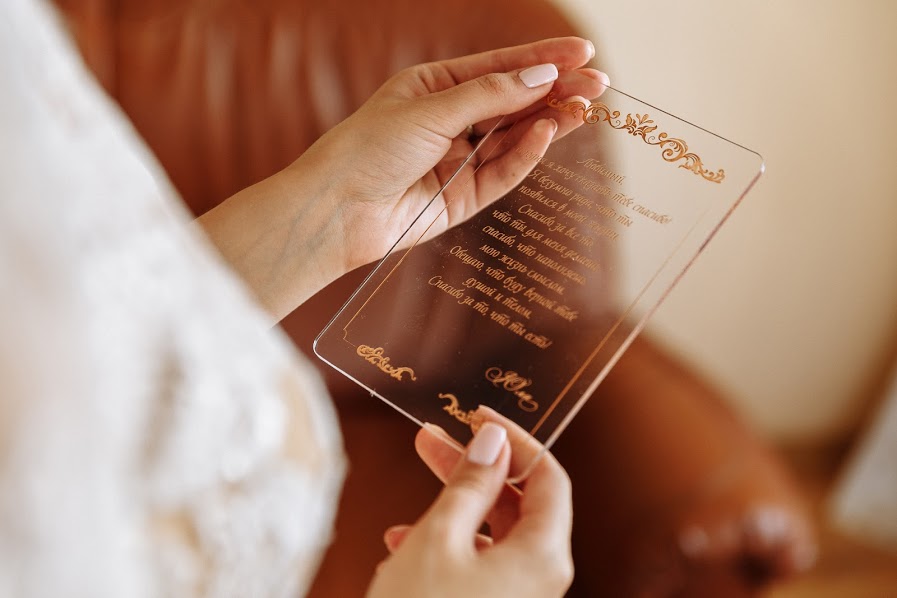 Любимый,
я хочу сказать тебе спасибо!
Я безумно рада, что ты
появился в моей жизни.
Спасибо за все то,
что ты для меня делаешь,
спасибо, что наполняешь
мою жизнь смыслом.
Обещаю, что буду верной тебе
душой и телом.
Спасибо за то, что ты есть!